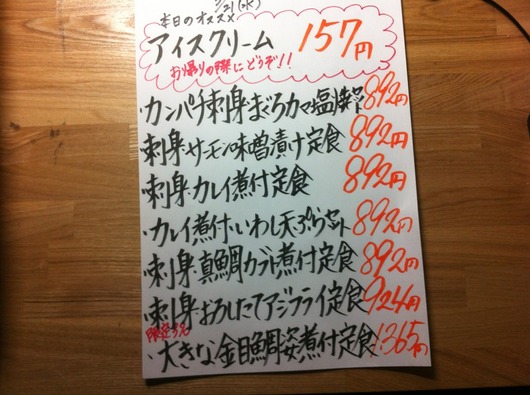 本日のオススメ
アイスクリーム 157円
お帰りの際にどうぞ!!
・カンパチ刺身・まぐろカマ塩焼 892円
・刺身・サーモン味噌漬け定食 892円
・刺身・カレイ煮付定食 892円
・カレイ煮付・いわし天ぷらセット 892円
・刺身・真鯛カブト煮付定食 892円
・刺身・おろしたてアジフライ定食 924円
・大きな金目鯛姿煮付定食 1365円